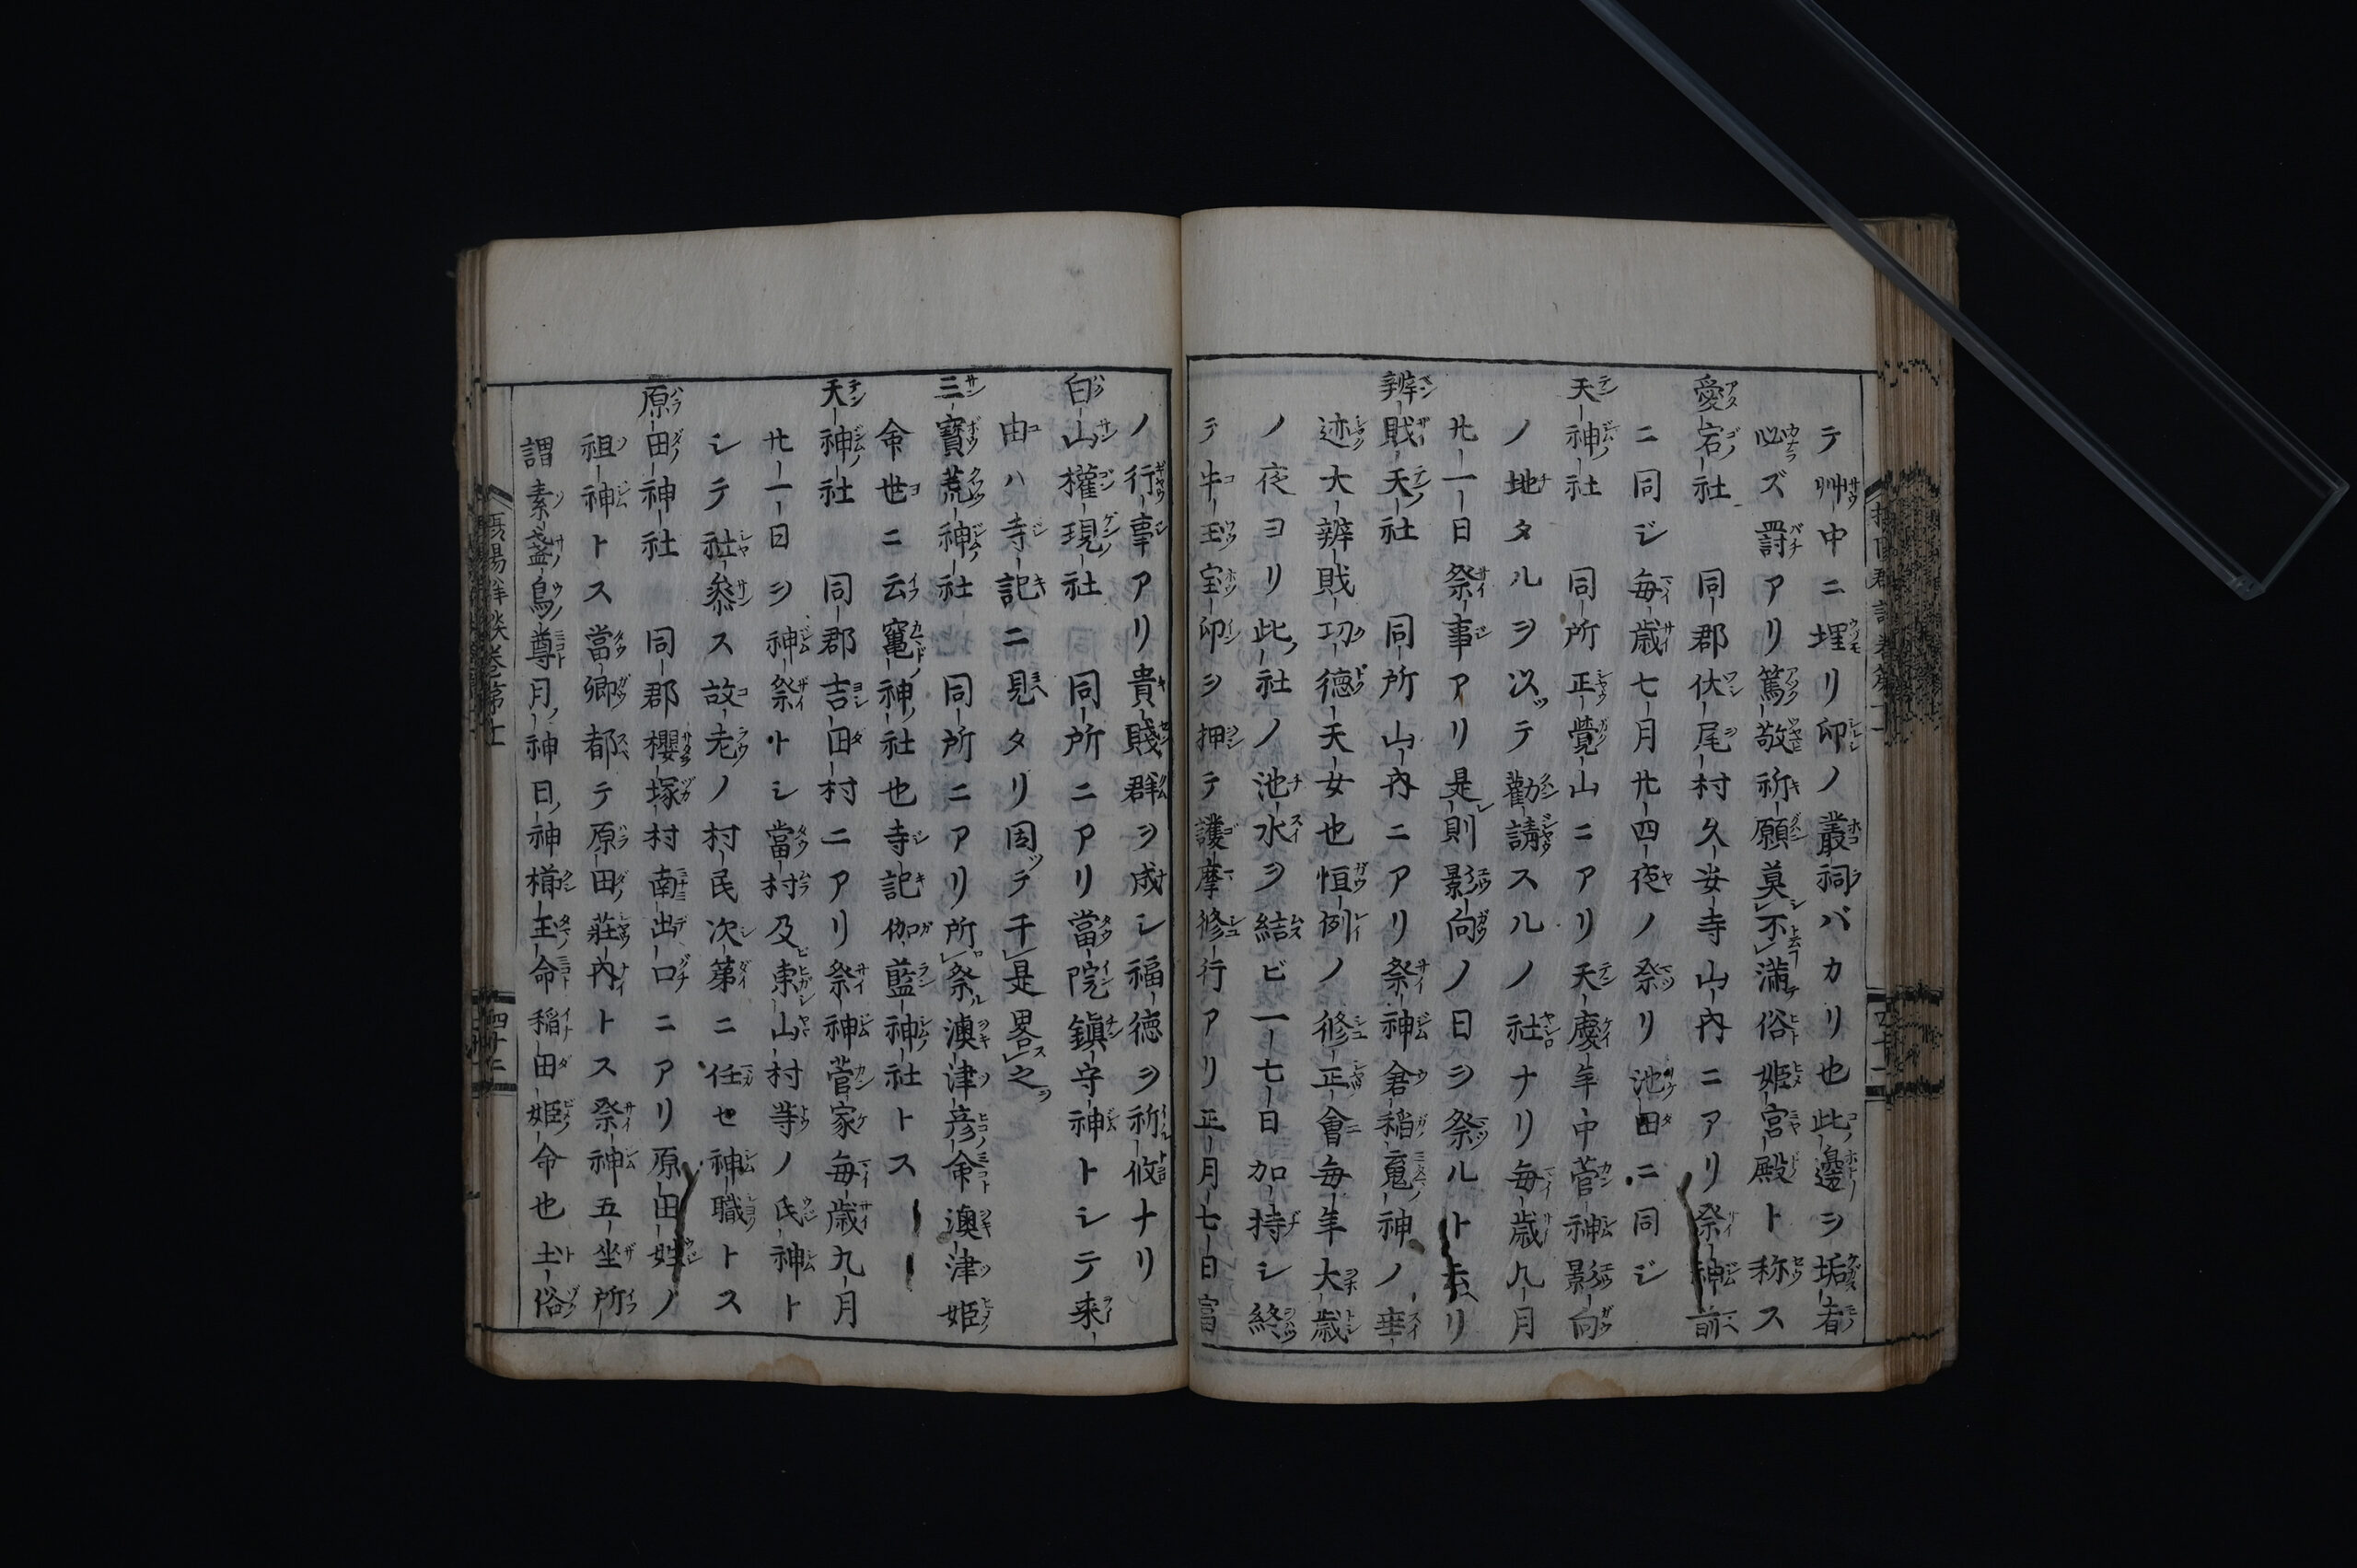 テ艸中ニ埋リ印ノ叢祠バカリ也此邊ヲ垢者
必ズ罸アリ篤敬祈願莫不滿俗姫宮殿ト称ス
愛宕社　同郡伏尾村久安寺山内ニアリ祭神前
ニ同ジ毎歳七月廿四夜ノ祭リ池田ニ同ジ
天神社　同所正覺山ニアリ天慶年中菅神影向
ノ地タルヲ以テ勸請スルノ社ナリ毎歳九月
廿一日祭事アリ是則影向ノ日ヲ祭ルト云リ
辨賎天社　同所山内ニアリ祭神倉稲䰠神ノ垂
迹大辨賎功徳天女也恒例ノ修正會毎年大歳
ノ夜ヨリ此社ノ池水ヲ結ビ一七日加持シ終
テ牛王宝印ヲ押テ護摩修行アリ正月七日富
ノ行事アリ貴賤群ヲ成シ福徳ヲ祈攸ナリ
白山權現社　同所ニアリ當院鎮守神トシテ来
由ハ寺記ニ見タリ因テ千是畧之
三寶荒神社　同所ニアリ所祭澳津彦命澳津姫
命世ニ云竃神社也寺記伽藍神社トス
天神社　同郡吉田村ニアリ祭神菅家毎歳九月
廿一日ヲ神祭トシ當村及東山村等ノ氏神ト
シテ社參ス故老ノ村民次第ニ任セ神職トス
原田神社　同郡櫻塚村南出口ニアリ原田姓ノ
祖神トス當郷都テ原田莊内トス祭神五坐所
謂素盞烏尊月神日神櫛玉命稲田姫命也土俗